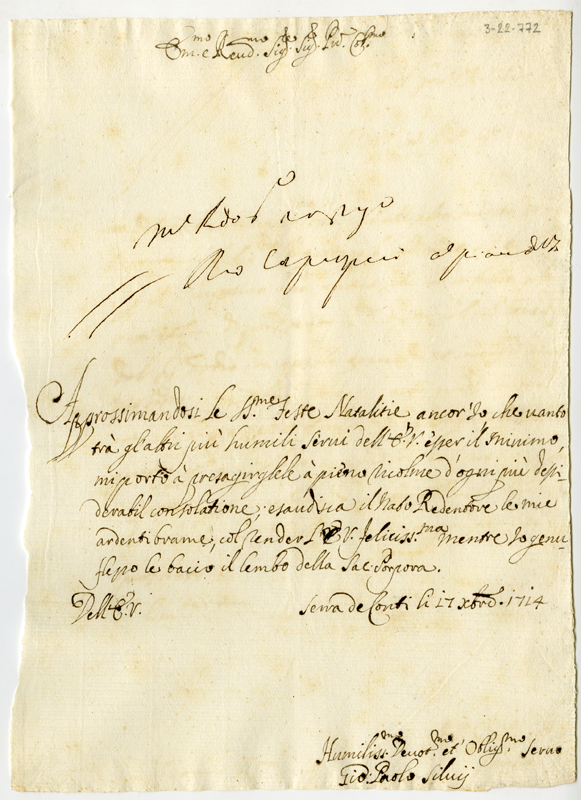 3-22-772
Em.mo e Reud.mo Sig.re Sig.r Pn̄e Col.mo
Approssimandosi le SS.me Feste Natalitie ancor' Io che uanto
trà gl'altri più humili serui dell'E.V. esser il minimo,
mi porto à presagirglele à pieno ricolme d'ogni più desi-
derabil consolatione; esaudisca il Nato Redentore le mie
ardenti brame, col render l'E.V. feliciss.ma mentre Io genu-
flesso le bacio il lembo della Sac. Porpora.
Dell'E.V. Serra de Conti li 17 xbre. 1714
Humiliss.mo Deuot.mo et Oblig.mo Seruo
Gio: Paolo Siluij